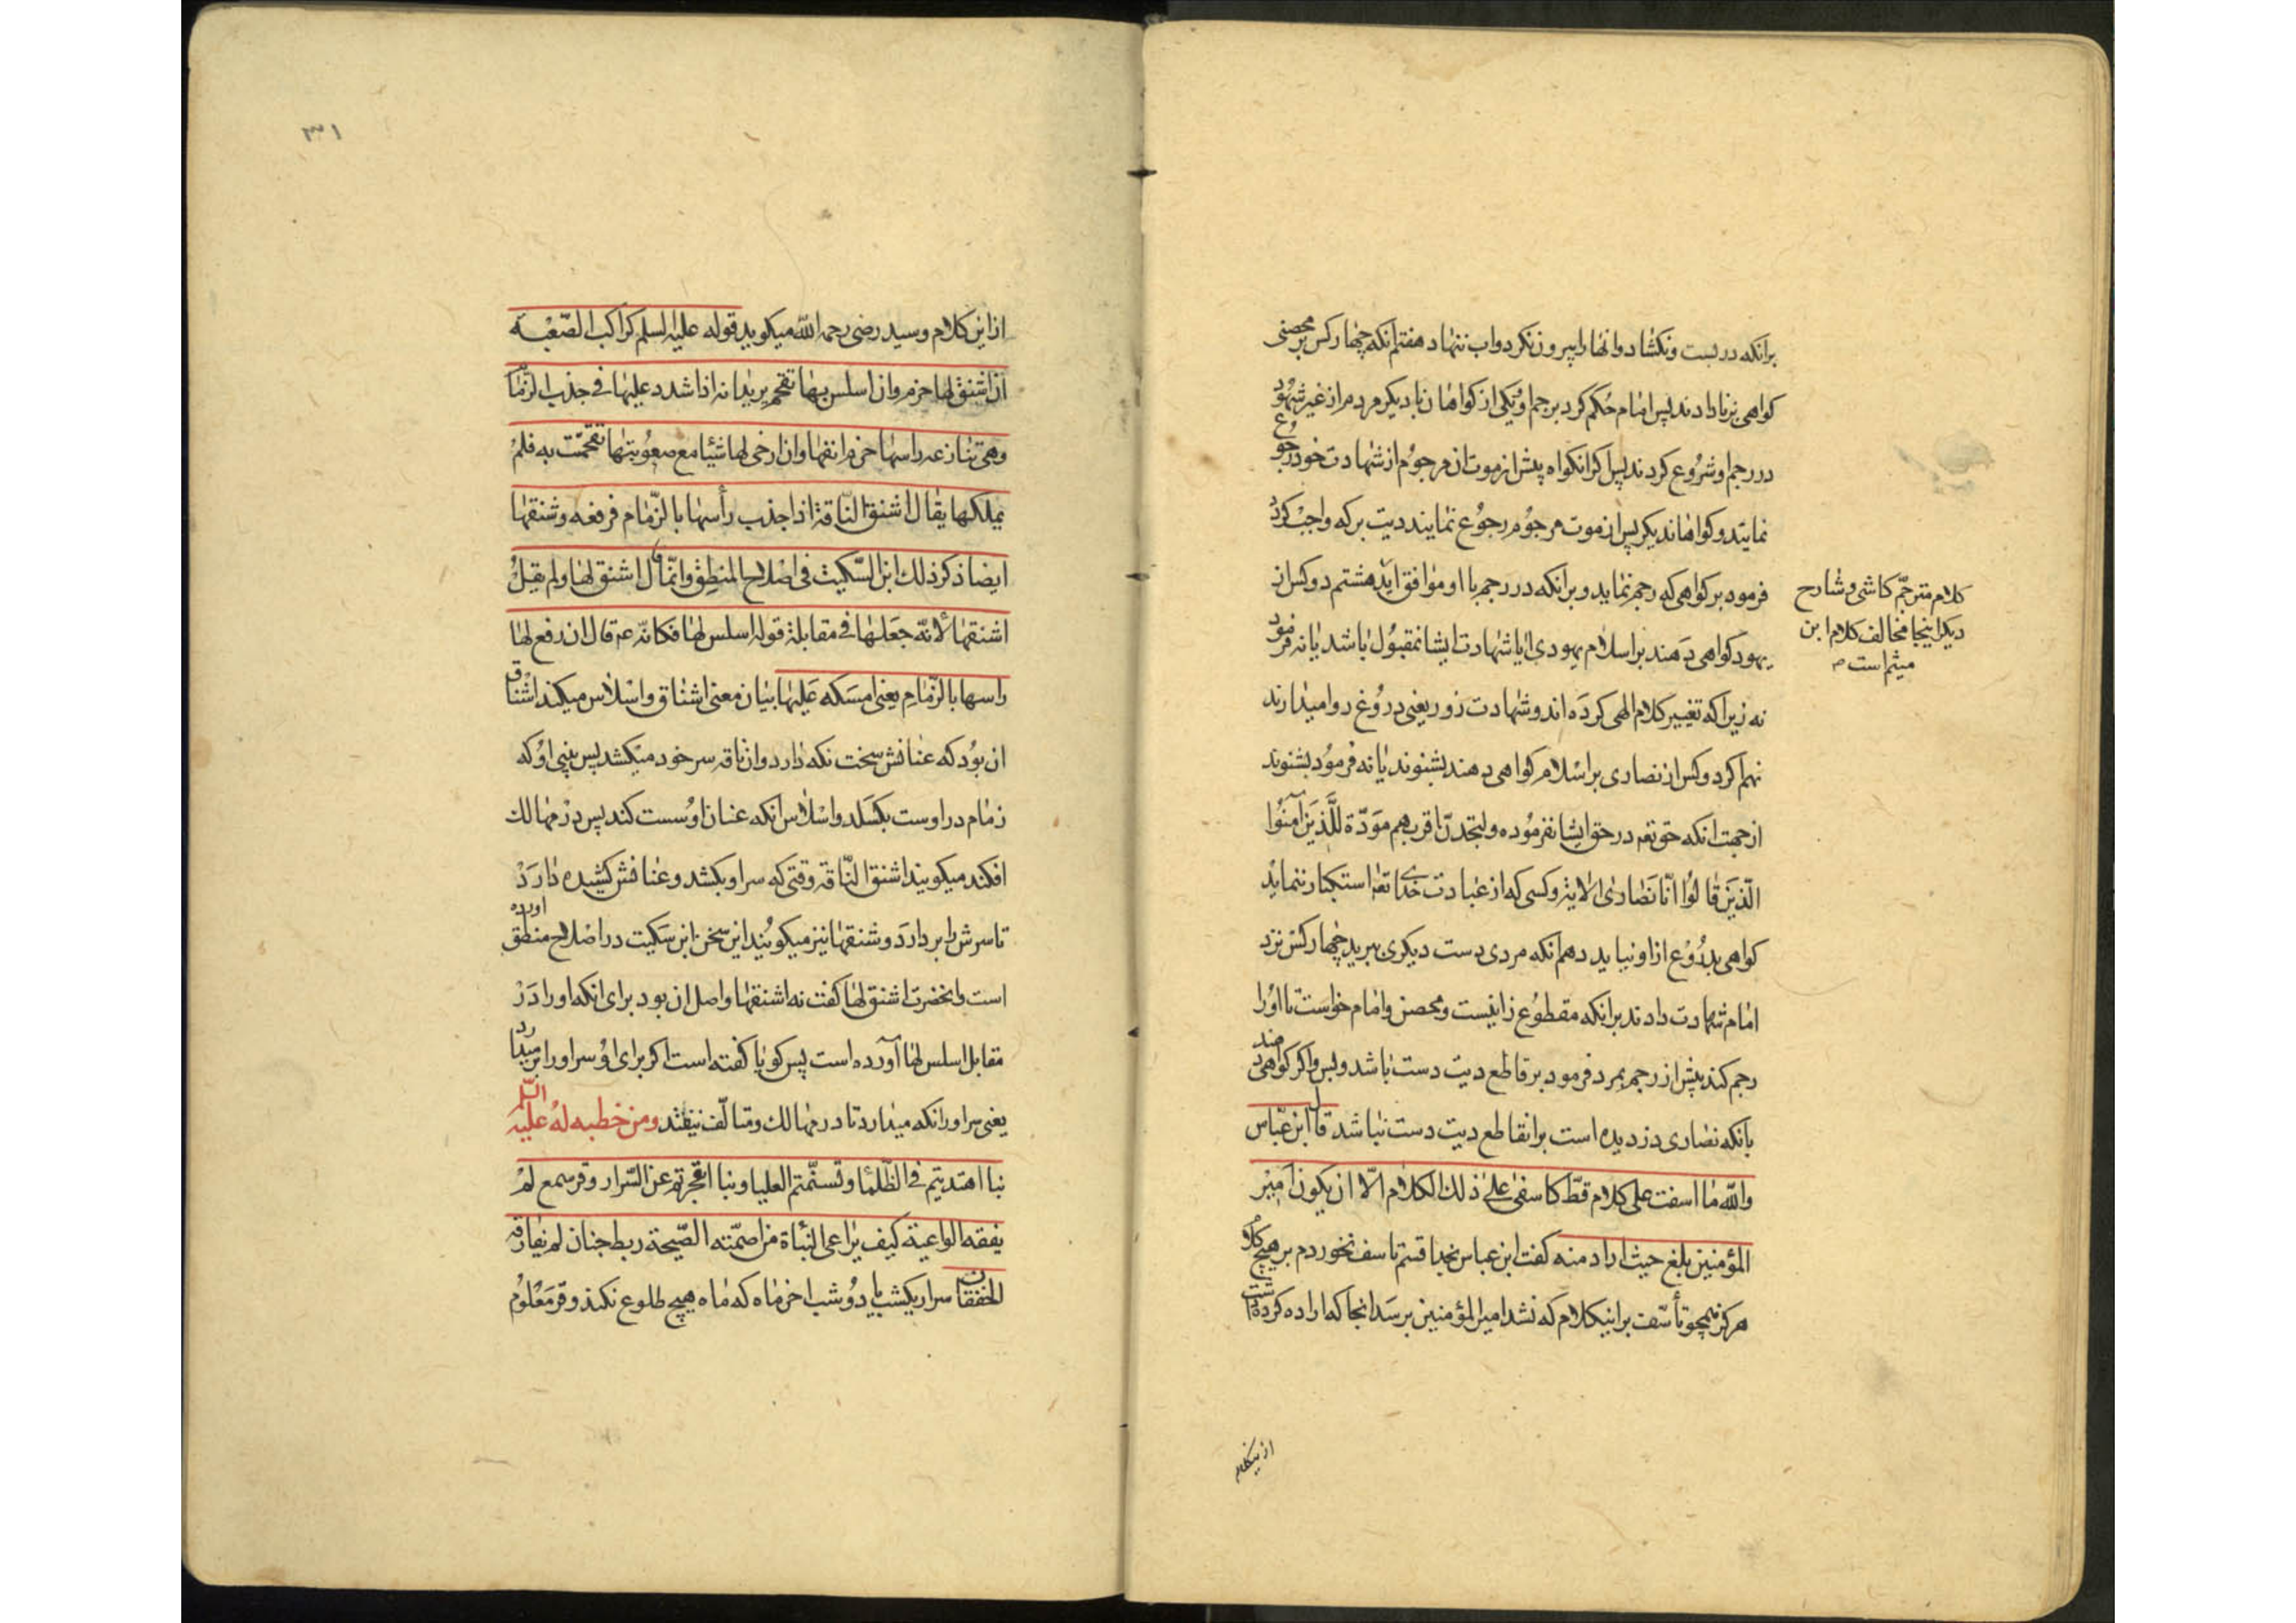 برانکه در بست ونکشاد وانها را بیرون نکرد واب ننهاد هفتم انکه چهار کس بر محصنی
کواهی بزنا دادند پس امام حکم کرد برجم او ویکی از کواهان با دیکر مردم از غیر شهود
در رجم او شروع کردند پس اکر انکواه پیش از موت ان مرجوم از شهادت خود رجوع
نمایند وکواهان دیکر پس از موت مرجوم رجوع نمایند دیت بر که واجب کردد
فرمود بر کواهی که رجم نماید وبرانکه در رجم با او موافق اید هشتم دو کس از
یهود کواهی دهند بر اسلام یهودی ایا شهادت ایشان مقبول باشد یا نه فرمود
نه زیرا که تغییر کلام الهی کرده اند وشهادت زور یعنی دروغ روا میدارند
نهم اکر دو کس از نصاری بر اسلام کواهی دهند بشنوند یا نه فرمود بشنوند
از جهت انکه حق تعه در حق ایشان فرموده ولتجدن اقربهم مودة للذین آمنوا
الذین قالوا انا نصاری الایة وکسی که از عبادت خدای تعه استکبار ننماید
کواهی بدروغ از او نیاید دهم انکه مردی دست دیکری ببرید چهار کس نزد
امام شهادت دادند برانکه مقطوع زانیست ومحصن وامام خواست تا اورا
رجم کند پیش از رجم بمرد فرمود بر قاطع دیت دست باشد وبس واکر کواهی دهند
بانکه نصاری دزدیده است برانقاطع دیت دست نباشد قال ابن عباس
والله ما اسفت علی کلام قط کاسفی علی ذلک الکلام الا ان یکون امیر
المؤمنین بلغ حیث اراد منه کفت ابن عباس بخدا قسم تاسف نخوردم بر هیچ کلام
هرکز همچو تأسف براینکلام که نشد امیر المؤمنین برسد انجا که اراده کرده داشت
کلام مترجم کاشی وشارح
دیکر اینجا مخالف کلام ابن
میثم است
از ینکلام
٣١
از این کلام وسید رضی رحمه الله میکوید قوله علیه السلم کراکب الصعبة
ان اشنق لها خرم وان اسلس بها تقحم یرید انه اذا شدد علیها فی جذب الزمام
وهی تنازعه راسها خرم انفها وان ارخی لها شیئا مع صعوبتها تقحمت به فلم
یملکها یقال اشنق الناقة اذا جذب رأسها بالزمام فرفعه وشنقها
ایضا ذکر ذلک ابن السکیت فی اصلاح المنطق وانما قال اشنق لها ولم یقل
اشنقها لانه جعلها فی مقابلة قوله اسلس لها فکانه عم قال ان رفع لها
راسها بالزمام یعنی امسکه علیها بیان معنی اشناق واسلاس میکند اشناق
ان بود که عنانش سخت نکه دارد وان ناقه سر خود میکشد پس بینی او که
زمام در اوست بکسلد واسلاس انکه عنان او سست کند پس در مهالک
افکند میکویند اشنق الناقه وقتی که سر او بکشد وعنانش کشیده دارد
تا سرش را بر دارد وشنقها نیز میکویند این سخن ابن سکیت در اصلاح منطق آورده
است وانحضرت اشنق لها کفت نه اشنقها واصل ان بود برای انکه اورا در
مقابل اسلس لها آورده است پس کویا کفته است اکر برای او سر اورا بر میدارد
یعنی سر اورا نکه میدارد تا در مهالک ومتالف نیفتد ومن خطبه له علیه السلم
بنا اهتدیتم فی الظلماء وتسنمتم العلیا وبنا انفجرتم عن السرار وقر سمع لم
یفقه الواعیة کیف یراعی النبأة من اصمته الصیحة ربط جنان لم یفارقه
الخفقان سرار یکشب یا دو شب اخر ماه که ماه هیچ طلوع نکند وقر معلوم